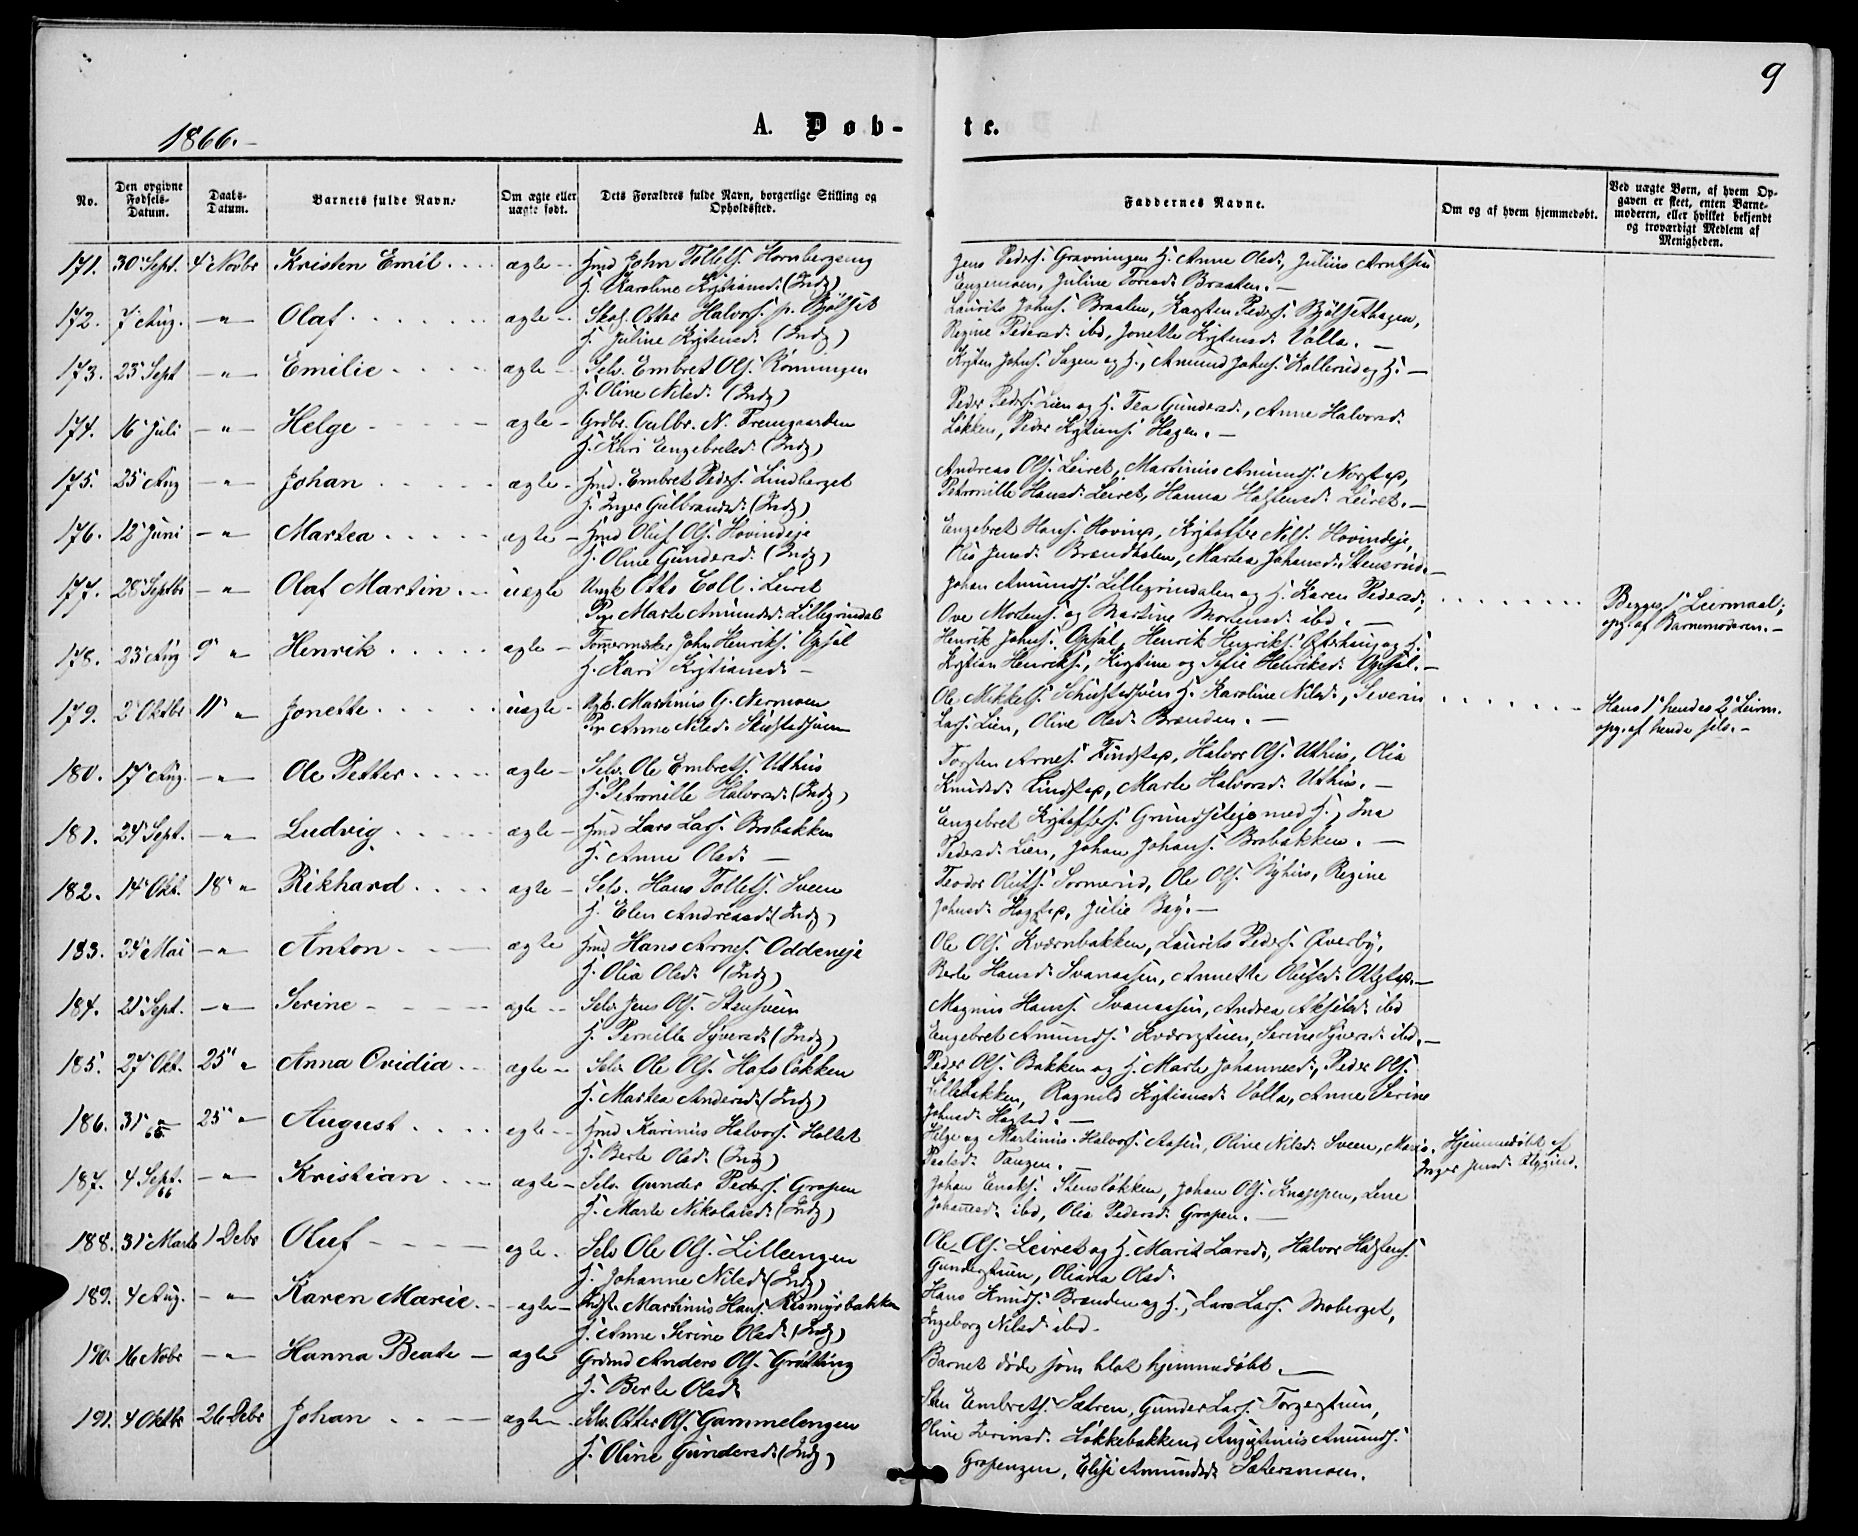 9
1866.
A. Døb-
te.
No.
Den opgivne Fødsels-Datum.
Daabs-Datum.
Barnets fulde Navn.
Om ægte eller uægte født.
Dets Forældres fulde Navn, borgerlige Stilling og Opholdssted.
Faddernes Navne.
Om og af hvem hjemmedøbt.
Ved uægte Børn, af hvem Opgaven er skeet, enten Barnemoderen, eller hvilket bekjendt og troværdigt Medlem af Menigheden.
171. 30 Sept. 4 Novbr Kristen Emil ægte Hmd John Tollefs. Hornbergeng
H. Karoline Kristiansd. (Indg)
Jens Peders. Gravningen H. Anne Olsd., Julius Arntsen
Engermoen, Juline Toresd. Braaten.
172. 7 Aug. Olaf ægte Otter Halvors. p. Bjølset
H. Juline Kristensd. (Indg)
Laurits Johns. Braaten, Karsten Peders. Bjølsethagen,
Regine Pedersd. ibd, Jonette Kristensd. Volla.
173. 23 Sept Emilie ægte Selv. Embret Ols. Rønningen
H. Oline Nilsd. (Indg)
Kristen Johns. Sagen og H., Amund Johns. Kollerud og H.
174. 16 Juli Helge ægte Grdbr. Gulbr. N. Fremgaarden
H. Kari Engebretsd. (Indg)
Peder Peders. Lien og H. Tea Gundersd., Anne Halvorsd.
Løkken, Peder Kristians. Hagen.
175. 25 Aug Johan ægte Hmd. Embret Peders. Lindberget
H. Inger Gulbrandsd. (Indg)
Andreas Ols. Leiret, Martinus Amunds. Norstad,
Petronille Hansd. Leiret, Hanna Halstensd. Leiret.
176. 12 Juni Martea ægte Hmd Oluf Ols. Hovindeje
H. Oline Gundersd. (Indg)
Engebret Hans. Hovind, Kristoffer Nils. Hovindeje,
Olia Jensd. Brændholen, Martea Johansd. Stensrud.
177. 28 Septbr Olaf Martin uægte Ungk. Otto Coll i Leiret
Pige Marte Amundsd. Lillegrindal
Johan Amunds. Lillegrindalen og H. Karen Pedersd.,
Ove Mortens. og Martine Mortensd. ibd.
Begges 1 Leiermaal,
opg. af Barnemoderen.
178. 23 Aug 9 Henrik ægte Tømmermærker John Henriks. Opsal
H. Kari Kristiansd.
Henrik Johns. Opsal, Henrik Henriks. Østerhaug og H.
Kristian Henriks., Kristine og Sofie Henriksd. Opsal.
179. 2 Oktbr 11 Jonette uægte Ugk. Martinus G. Nermoen
Pige Anne Nilsd. Skistadsveen
Ole Mikkels. H. Karoline Nilsd., Severin
Lars. Lien, Oline Olsd. Brænden.
Hans 1 hendes 2 Leierm.
opg. af hende selv.
180. 17 Aug. Ole Petter ægte Selv. Ole Embrets. Uthus
H. Petronille Halvorsd. (Indg)
Torsten Arnes. Findstad, Halvor Ols. Uthus, Olia
Knudsd. Findstad, Marte Halvorsd. Uthus.
181. 24 Sept. Ludvig ægte Hmd Lars Lars. Brobakken
H. Anne Olsd.
Engebret Kristoffers. Grundseteje med H., Ina
Pedersd. Lien, Johan Johans. Brobakken.
182. 14 Okt. 18 Rikhard ægte Selv. Hans Tollefs. Sveen
H. Elen Andreasd. (Indg)
Teodor Olufs. Sormerud, Ole Ols. Nyhus, Regine
Johnsd. Hagstad, Julie Bay.
183. 31 Mai Anton ægte Hmd Hans Arnes. Oddeneje
H. Olia Olsd. (Indg)
Ole Ols. Kværnbakken, Laurits Peders. Øverby,
Berte Hansd. Svenaasen, Annette Olufsd. Olstad.
184. 21 Sept. Serine ægte Selv Jens Ols. Stensveen
H. Pernille Syversd. (Indg)
Magnus Hans. Svenaasen, Andrea Akselsd. ibd
Engebret Amunds. Kværnstuen, Serine Syversd. ibd.
185. 27 Okt. 25 Anna Ovidia ægte Selv Ole Ols. Hofsløkken
H. Martea Andersd. (Indg)
Peder Ols. Bakken og H. Marte Johannesd., Peder Ols.
Lillebakken, Ragnild Kristiansd. Volla, Anne Serine
Johnsd. Hagstad.
186. 31 65 25 August egte Hmd Karinus Halvors. Holtet
H. Berte Olsd. (Indg)
Helge og Martinus Halvors. Aasen, Oline Nilsd. Sveen, Maria
Paalsd. Tangen.
Hjemmedøbt af
Inger Jensd.
187. 4 Sept. 66 Kristian ægte Selv. Gunder Peders. Gropen
H. Marte Nikolaisd. (Indg)
Johan Ensks. Stensløkken, Johan Ols. Knappen, Lene
Johannesd. ibd, Olia Pedersd. Gropen.
188. 31 Marts 1 Debr Oluf egte Selv Ole Ols. Lilleengen
H. Johanne Nilsd. (Indg)
Ole Ols. Leiret og H. Marit Larsd., Halvor Halstens.
Gunderstuen, Oliana Olsd.
189. 4 Aug. Karen Marie egte Martinus Hans. Rismyrbakken
H. Anne Serine Olsd. (Indg)
Hans Knuds. Brænden og H., Lars Lars. Moberget,
Ingeborg Nilsd. ibd.
190. 16 Nobr Hanna Beate ægte Grdmd Anders Ols. Grøtting
H. Berte Olsd.
Barnet døde som blot hjemmedøbt.
191. 4 Oktbr 26 Debr Johan ægte Selv. Otter Ols. Gammelengen
H. Oline Gundersd. (Indg)
Sten Embrets. Sætren, Gunder Lars. Torgerstuen,
Oline Iversd. Løkkebakken, Augustinus Amunds.
Gropengen, Elise Amundsd. Sætersmoen.